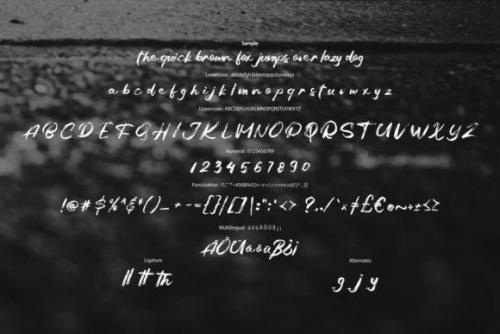 Sample
the quick brown fox jumps over lazy dog
Lowercase : abcdefghijklmnopqrstuvwxyz
a b c d e f g h i j k l m n o p q r s t u v w x y z
Uppercase : ABCDEFGHIJKLMNOPQRSTUVWXYZ
A B C D E F G H I J K L M N O P Q R S T U V W X Y Z
Numeral : 0123456789
1 2 3 4 5 6 7 8 9 0
Punctuation :
! @ # $ % ^ & * ( ) _ + - = { } | [ ] \ : " ; ' < > ? , . / `
Multilingual :
Ligature
ll tt th
Alternates
g j y